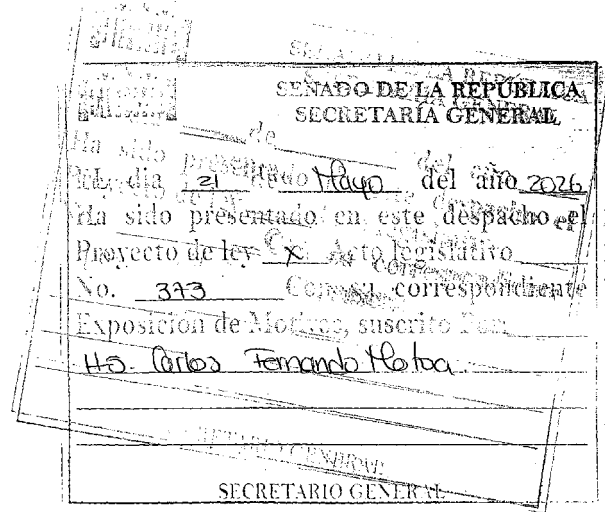 SENADO DE LA REPÚBLICA
SECRETARÍA GENERAL
El día 21 de Mayo del año 2026
Ha sido presentado en este despacho el
Proyecto de ley X Acto legislativo
No. 373 Con su correspondiente
Exposición de Motivos, suscrito Por:
H.S. Carlos Fernando Motoa
SECRETARIO GENERAL